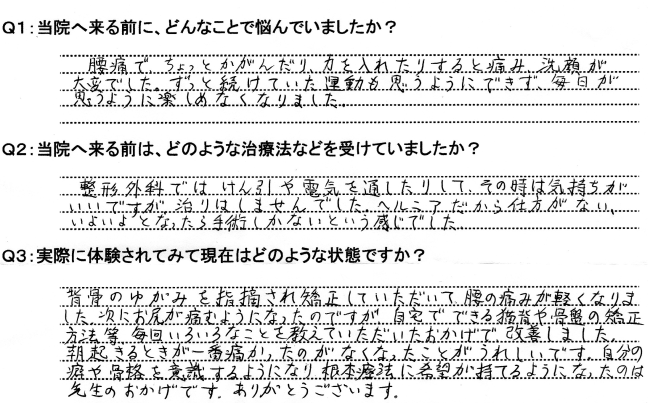 Q1:当院へ来る前に、どんなことで悩んでいましたか？
腰痛で ちょっとかがんだり、力を入れたりすると痛み、洗顔が
大変でした。ずっと続けていた運動も思うようにできず、毎日が
思うように楽しめなくなりました。
Q2:当院へ来る前は、どのような治療法などを受けていましたか？
整形外科では けん引や電気を通したりして、その時は気持ちが
いいですが 治りはしませんでした。ヘルニアだから仕方がない、
いよいよとなったら手術しかないという感じでした。
Q3:実際に体験されてみて現在はどのような状態ですか？
背骨のゆがみを指摘され矯正していただいて 腰の痛みが軽くなりま
した。次にお尻が痛むようになったのですが、自宅でできる猫背や骨盤の矯正
方法等 毎回いろいろなことを教えていただいたおかげで 改善しました。
朝起きるときが一番痛かったのがなくなったことがうれしいです。自分の
癖や骨格を意識するようになり 根本療法に希望が持てるようになったのは
先生のおかげです。ありがとうございます。